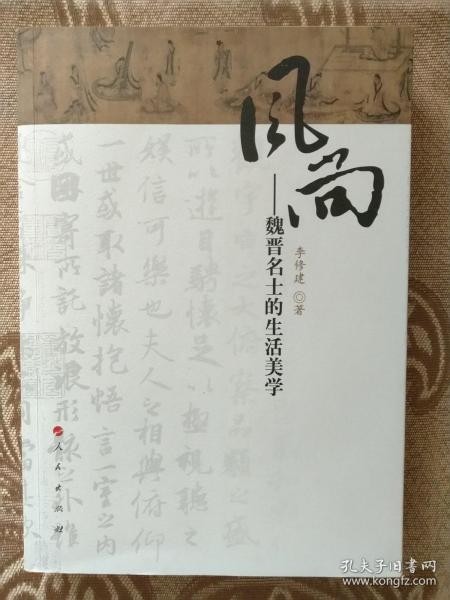 风尚
——魏晋名士的生活美学
李修建 ◎ 著
宇宙之大俯察品類之盛
所以遊目騁懷足以極視聽之
娛信可樂也夫人之相與俯仰
一世或取諸懷抱悟言一室之內
或因寄所託放浪形骸之外雖
人民出版社
孔夫子旧书网
www.kongfz.com